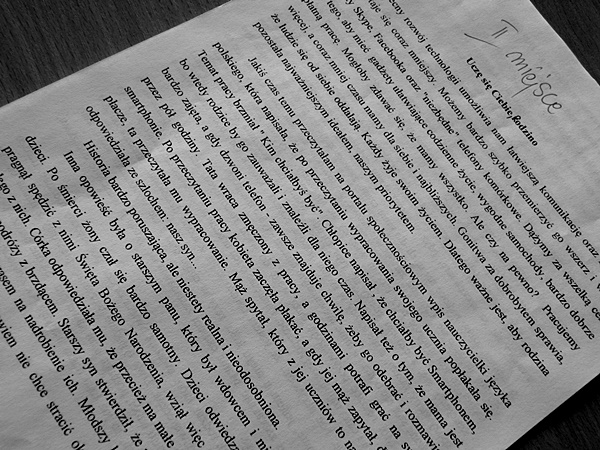 II miejsce
Uczę się Ciebie Rodzino
rozwój technologii umożliwia nam łatwiejszą komunikację oraz
się coraz mniejszy. Możemy bardzo szybko przemierzyć go wszerz i
Skype, Facebooka oraz "niezbędne" telefony komórkowe. Dążymy za wszelką
tego, aby mieć gadżety ułatwiające codzienne życie, wygodne samochody, bardzo dobrze
płatną pracę. Mogłoby zdawać się, że mamy wszystko. Ale czy na pewno? Pracujemy
więcej, a coraz mniej czasu mamy dla siebie i najbliższych. Gonitwa za dobrobytem sprawia,
że ludzie się od siebie oddalają. Każdy żyje swoim życiem. Dlatego ważne jest, aby rodzina
pozostała najważniejszym ideałem, naszym priorytetem.
Jakiś czas temu przeczytałam na portalu społecznościowym wpis nauczycielki języka
polskiego, która napisała, że po przeczytaniu wypracowania swojego ucznia popłakała się.
Temat pracy brzmiał " Kim chciał?yś być" Chłopiec napisał , że chciałby być Smartphonem,
bo wtedy rodzice by go zauważali i znaleźli dla niego czas. Napisał też o tym, że mama jest
bardzo zajęta, a gdy dzwoni telefon - zawsze znajduje chwilę, żeby go odebrać i rozmawia
przez pół godziny. Tata wraca zmęczony z pracy, a godzinami potrafi grać na
smartphonie. Po przeczytaniu pracy kobieta zaczęła płakać, a gdy jej mąż zapytał,
płacze, ta przeczytała mu wypracowanie. Mąż spytał, który z jej uczniów to
odpowiedziała ze szlochem: nasz syn...
Historia bardzo poruszająca, ale niestety realna i nieodosobniona.
Inna opowieść była o starszym panu, który był wdowcem i
dzieci. Po śmierci żony czuł się bardzo samotny. Dzieci
pragnął spędzić z nimi Święta Bożego Narodzenia, wziął więc
z nich. Córka odpowiedziała mu, że przecież ma małe
z brzdącem. Starszy syn stwierdził, że
na nadrobienie ich. Młodszy
nie chce stracić